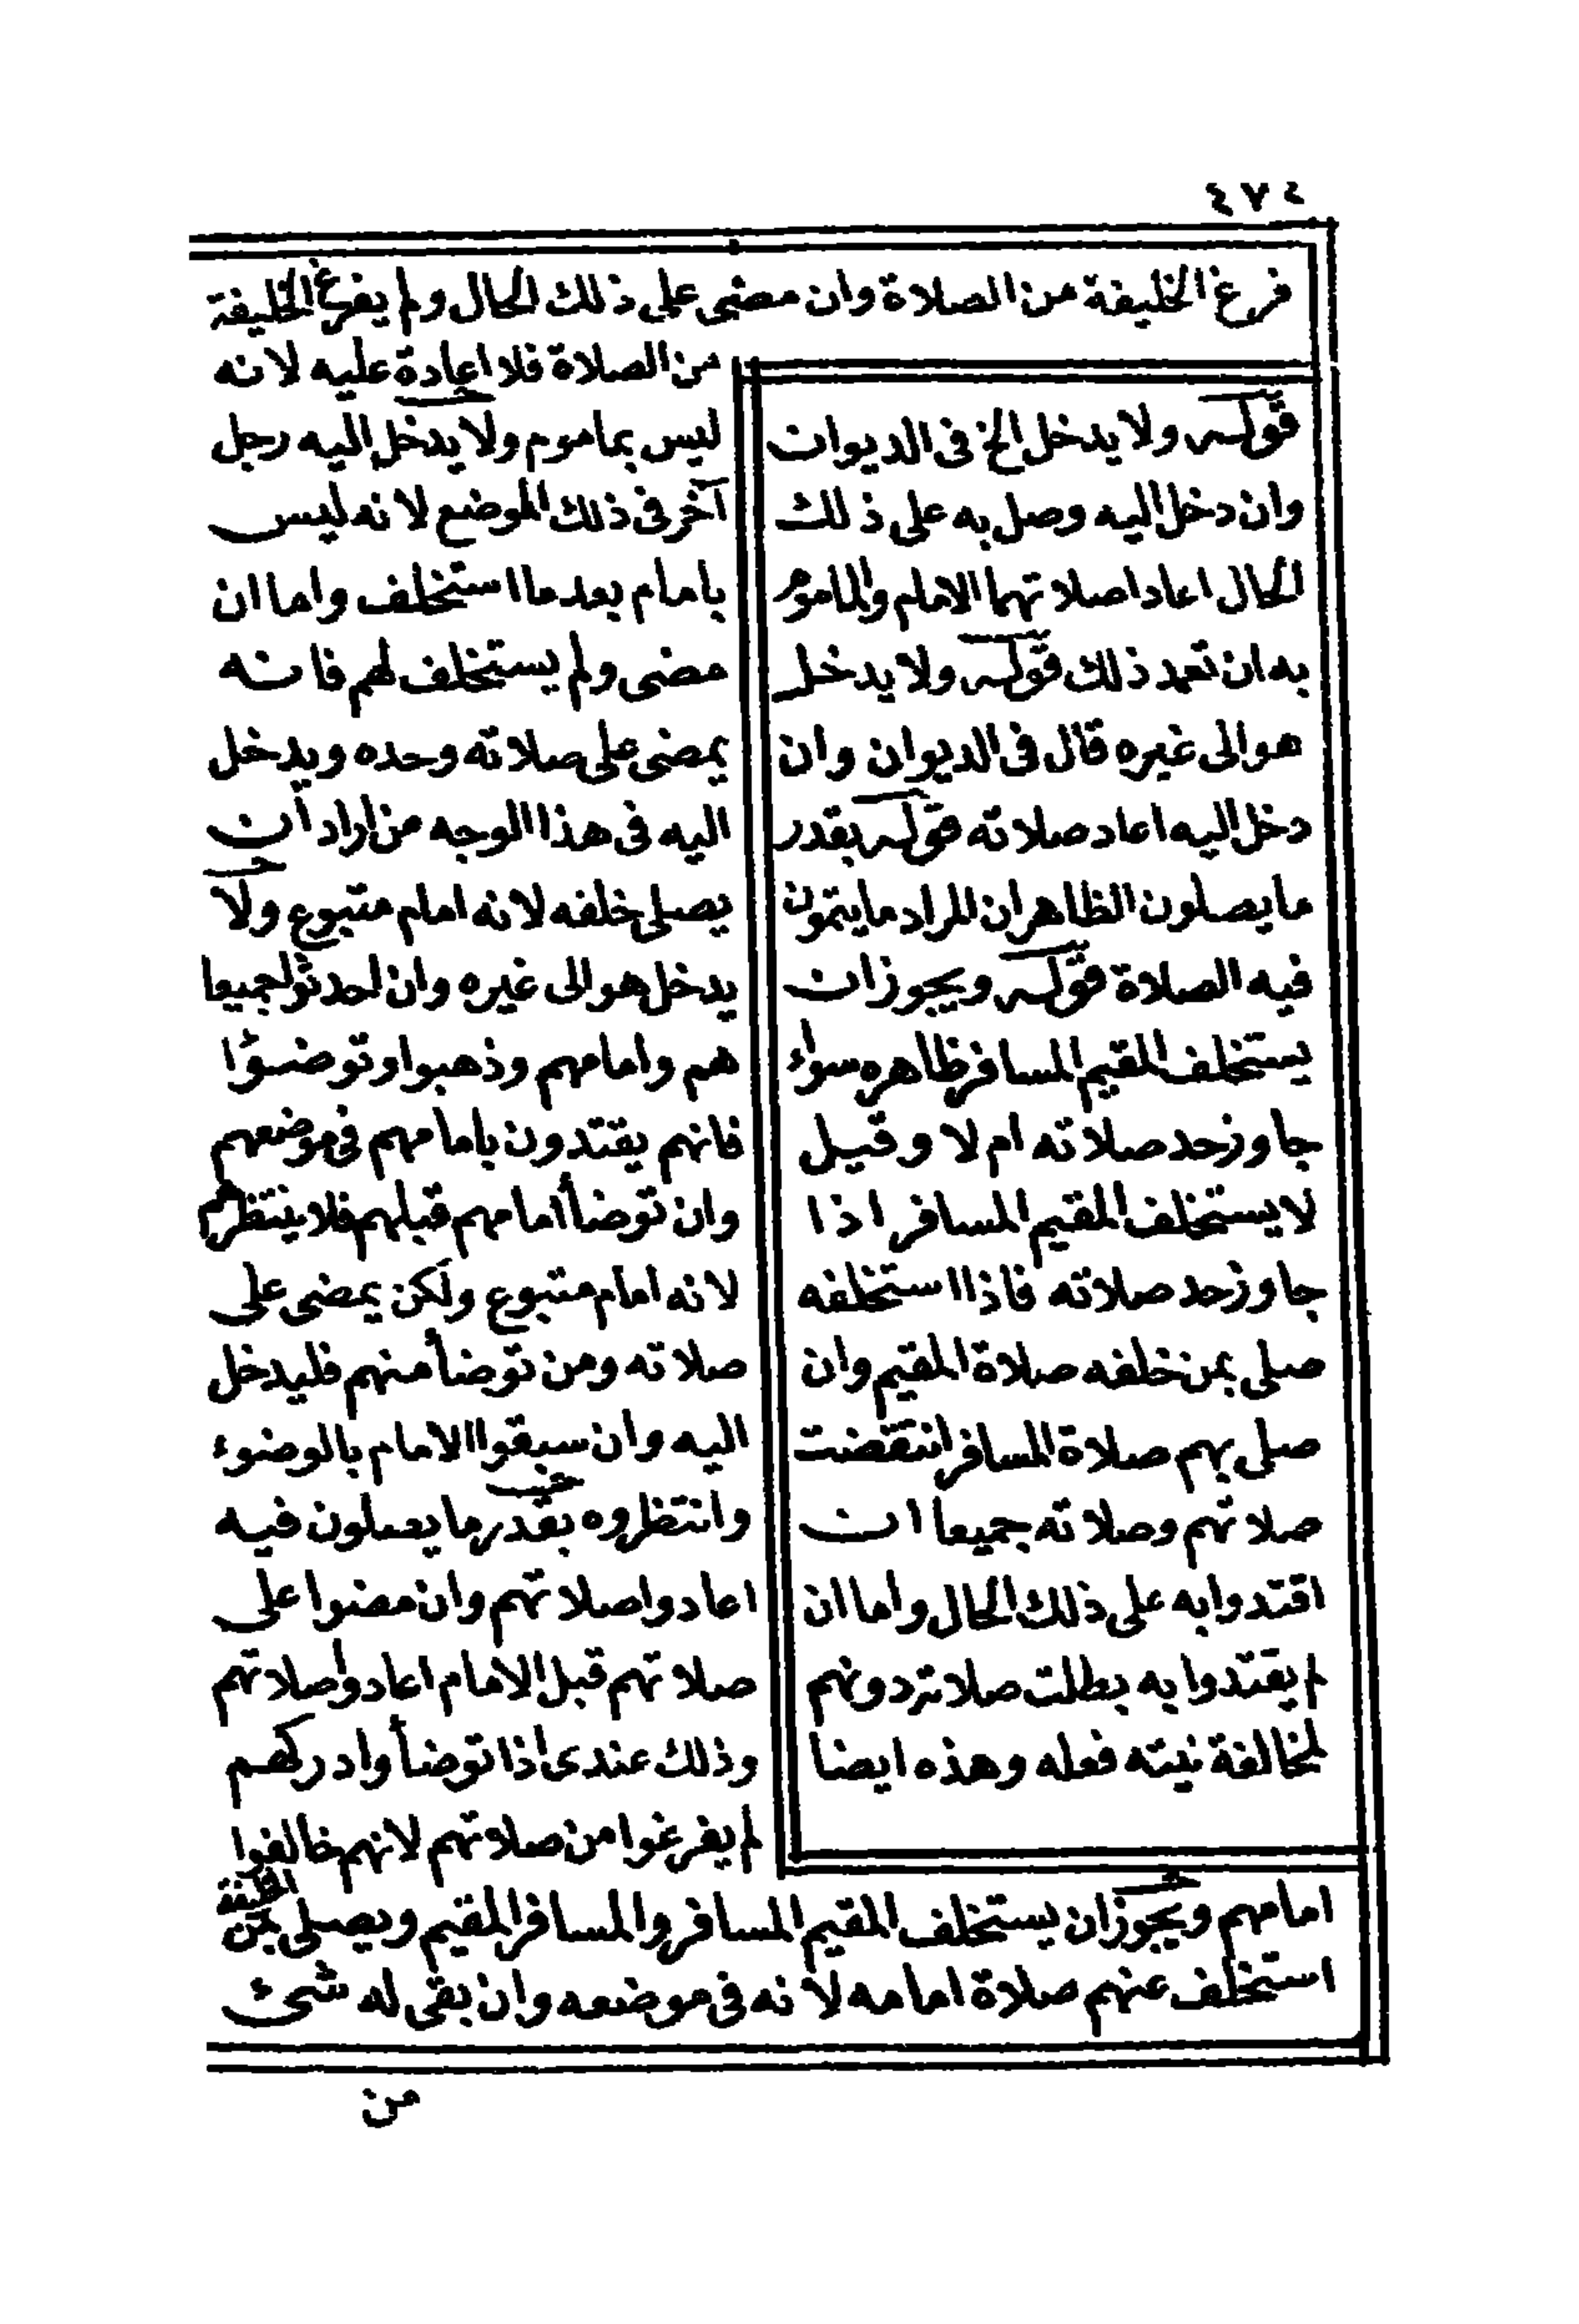 ٤٧٤
فرغ الخليفة من الصلاة وان مضى على ذلك الحال ولم يفرغ الخليفة
من الصلاة فلا اعادة عليه لانه
ليس بماموم ولا يدخل اليه رجل
آخر فى ذلك الموضع لانه ليس
بامام بعد ما استخلف واما ان
مضى ولم يستخلف لهم فانه
يمضى على صلاته وحده ويدخل
اليه فى هذا الوجه من اراد أن
يصلى خلفه لانه امام متبوع ولا
يدخل هو الى غيره وان احدثوا جميعا
هم وامامهم وذهبوا وتوضئوا
فانهم يقتدون بامامهم فى موضعهم
وان توضأ امامهم قبلهم فلا ينتظرهم
لانه امام متبوع ولكن يمضى على
صلاته ومن توضأ منهم فليدخل
اليه وان سبقوا الامام بالوضوء
وانتظروه بقدر ما يصلون فيه
اعادوا صلاتهم وان مضوا على
صلاتهم قبل الامام اعادوا صلاتهم
وذلك عندى اذا توضأ وادركهم
لم يفرغوا من صلاتهم لانهم خالفوا
امامهم ويجوز ان يستخلف المقيم المسافر والمسافر المقيم ويصلى الخليفة بمن
استخلف عنهم صلاة امامه لانه فى موضعه وان بقى له شئ
قوله ولا يدخل الخ فى الديوان
وان دخل اليه وصل به على ذلك
الحال اعادا صلاتهما الامام والماموم
به ان تعمد ذلك قوله ولا يدخل
هو الى غيره قال فى الديوان وان
دخل اليه اعاد صلاته قوله بقدر
ما يصلون الظاهر ان المراد ما يتمون
فيه الصلاة قوله ويجوز ان
يستخلف المقيم المسافر ظاهره سواء
جاوز حد صلاته ام لا وقيل
لا يستخلف المقيم المسافر اذا
جاوز حد صلاته فاذا استخلفه
صلى بمن خلفه صلاة المقيم وان
صلى بهم صلاة المسافر انتقضت
صلاتهم وصلاته جميعا ان
اقتدوا به على ذلك الحال واما ان
لم يقتدوا به بطلت صلاته دونهم
لمخالفة نيته فعله وهذه ايضا
من